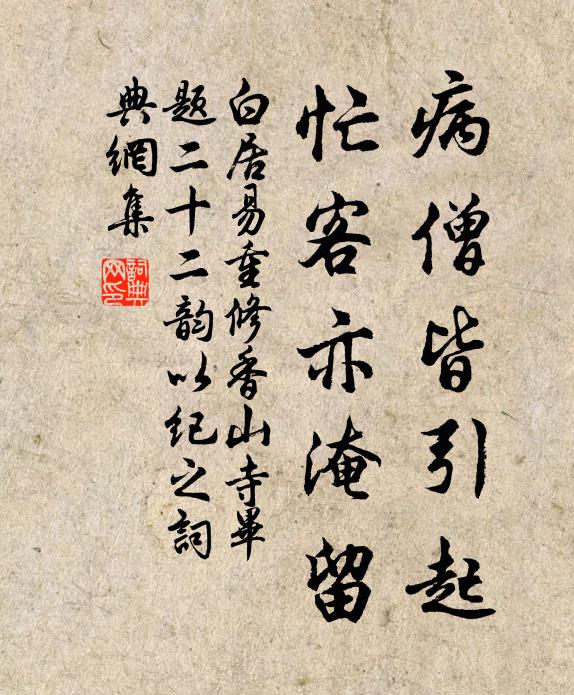 病僧皆引起
忙客亦淹留
白居易重修香山寺畢
题二十二韵以纪之詞
典網集
詞典
网印